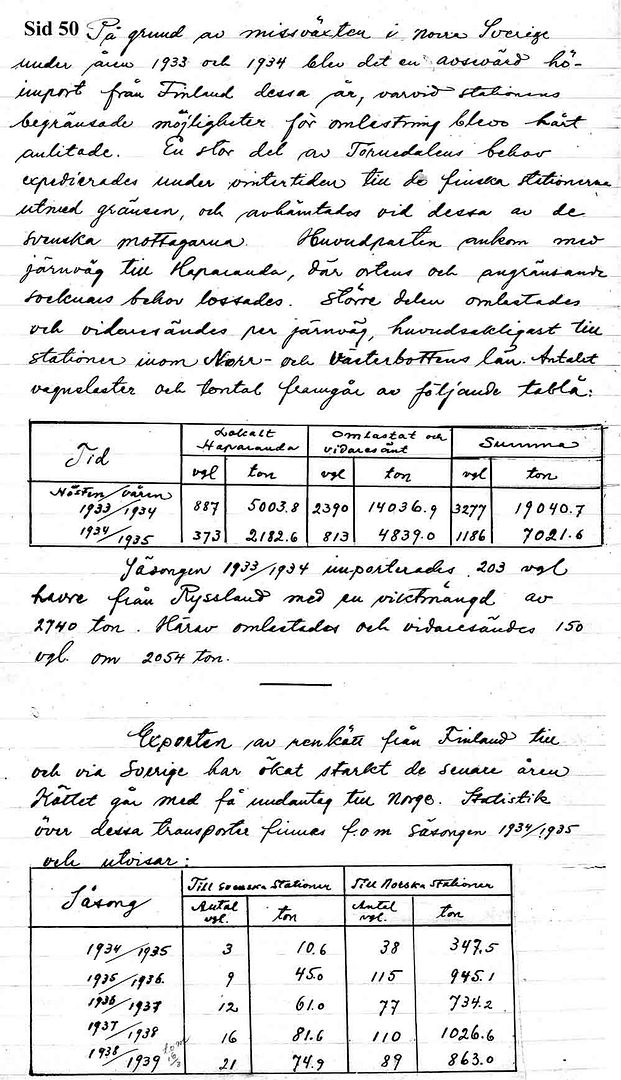 Sid 50 På grund av missväxten i norra Sverige
under åren 1933 och 1934 blev det en avsevärd hö-
import från Finland dessa år, varvid stationens
begränsade möjligheter för omlastning blevo hårt
anlitade. En stor del av Tornedalens behov
expedierades under vintertiden till de finska stationerna
utmed gränsen, och avhämtades vid dessa av de
svenska mottagarna. Huvudparten ankom med
järnväg till Haparanda, där ortens och angränsande
socknars behov lossades. Större delen omlastades
och vidaresändes per järnväg, huvudsakligast till
stationer inom Norr- och Västerbottens län. Antalet
vagnslaster och tontal framgår av följande tablå:
Tid Lokalt Haparanda Omlastat och vidaresänt Summa
vgl ton vgl ton vgl ton
Hösten/våren
1933/1934 887 5003.8 2390 14036.9 3277 19040.7
1934/1935 373 2182.6 813 4839.0 1186 7021.6
Säsongen 1933/1934 importerades 203 vgl
havre från Ryssland med en viktmängd av
2740 ton. Härav omlastades och vidaresändes 150
vgl. om 2054 ton.
Exporten av renkött från Finland till
och via Sverige har ökat starkt de senare åren
Köttet går med få undantag till Norge. Statistik
över dessa transporter finnes f.o.m säsongen 1934/1935
och utvisar:
Säsong Till svenska stationer Till Norska stationer
Antal vgl. ton Antal vgl. ton
1934/1935 3 10.6 38 347.5
1935/1936. 9 45.0 115 945.1
1936/1937 12 61.0 77 734.2
1937/1938 16 81.6 110 1026.6
1938/1939 21 74.9 89 863.0